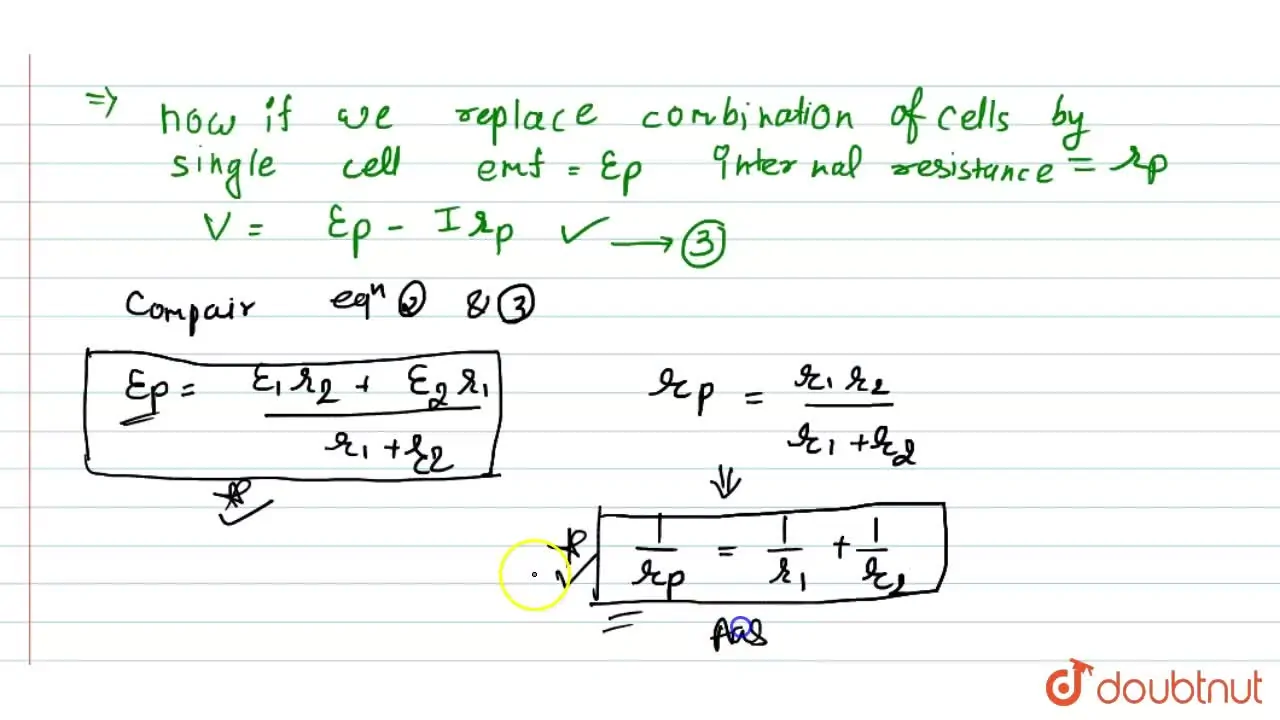 ⇒ now if we replace combination of cells by
single cell emf = εp internal resistance = rp
V = εp - I rp ✓ → ③
Compair eqⁿ ② & ③
εp = (ε1 r2 + ε2 r1) / (r1 + r2)
rp = r1 r2 / (r1 + r2)
⇓
1/rp = 1/r1 + 1/r2
Ans
doubtnut